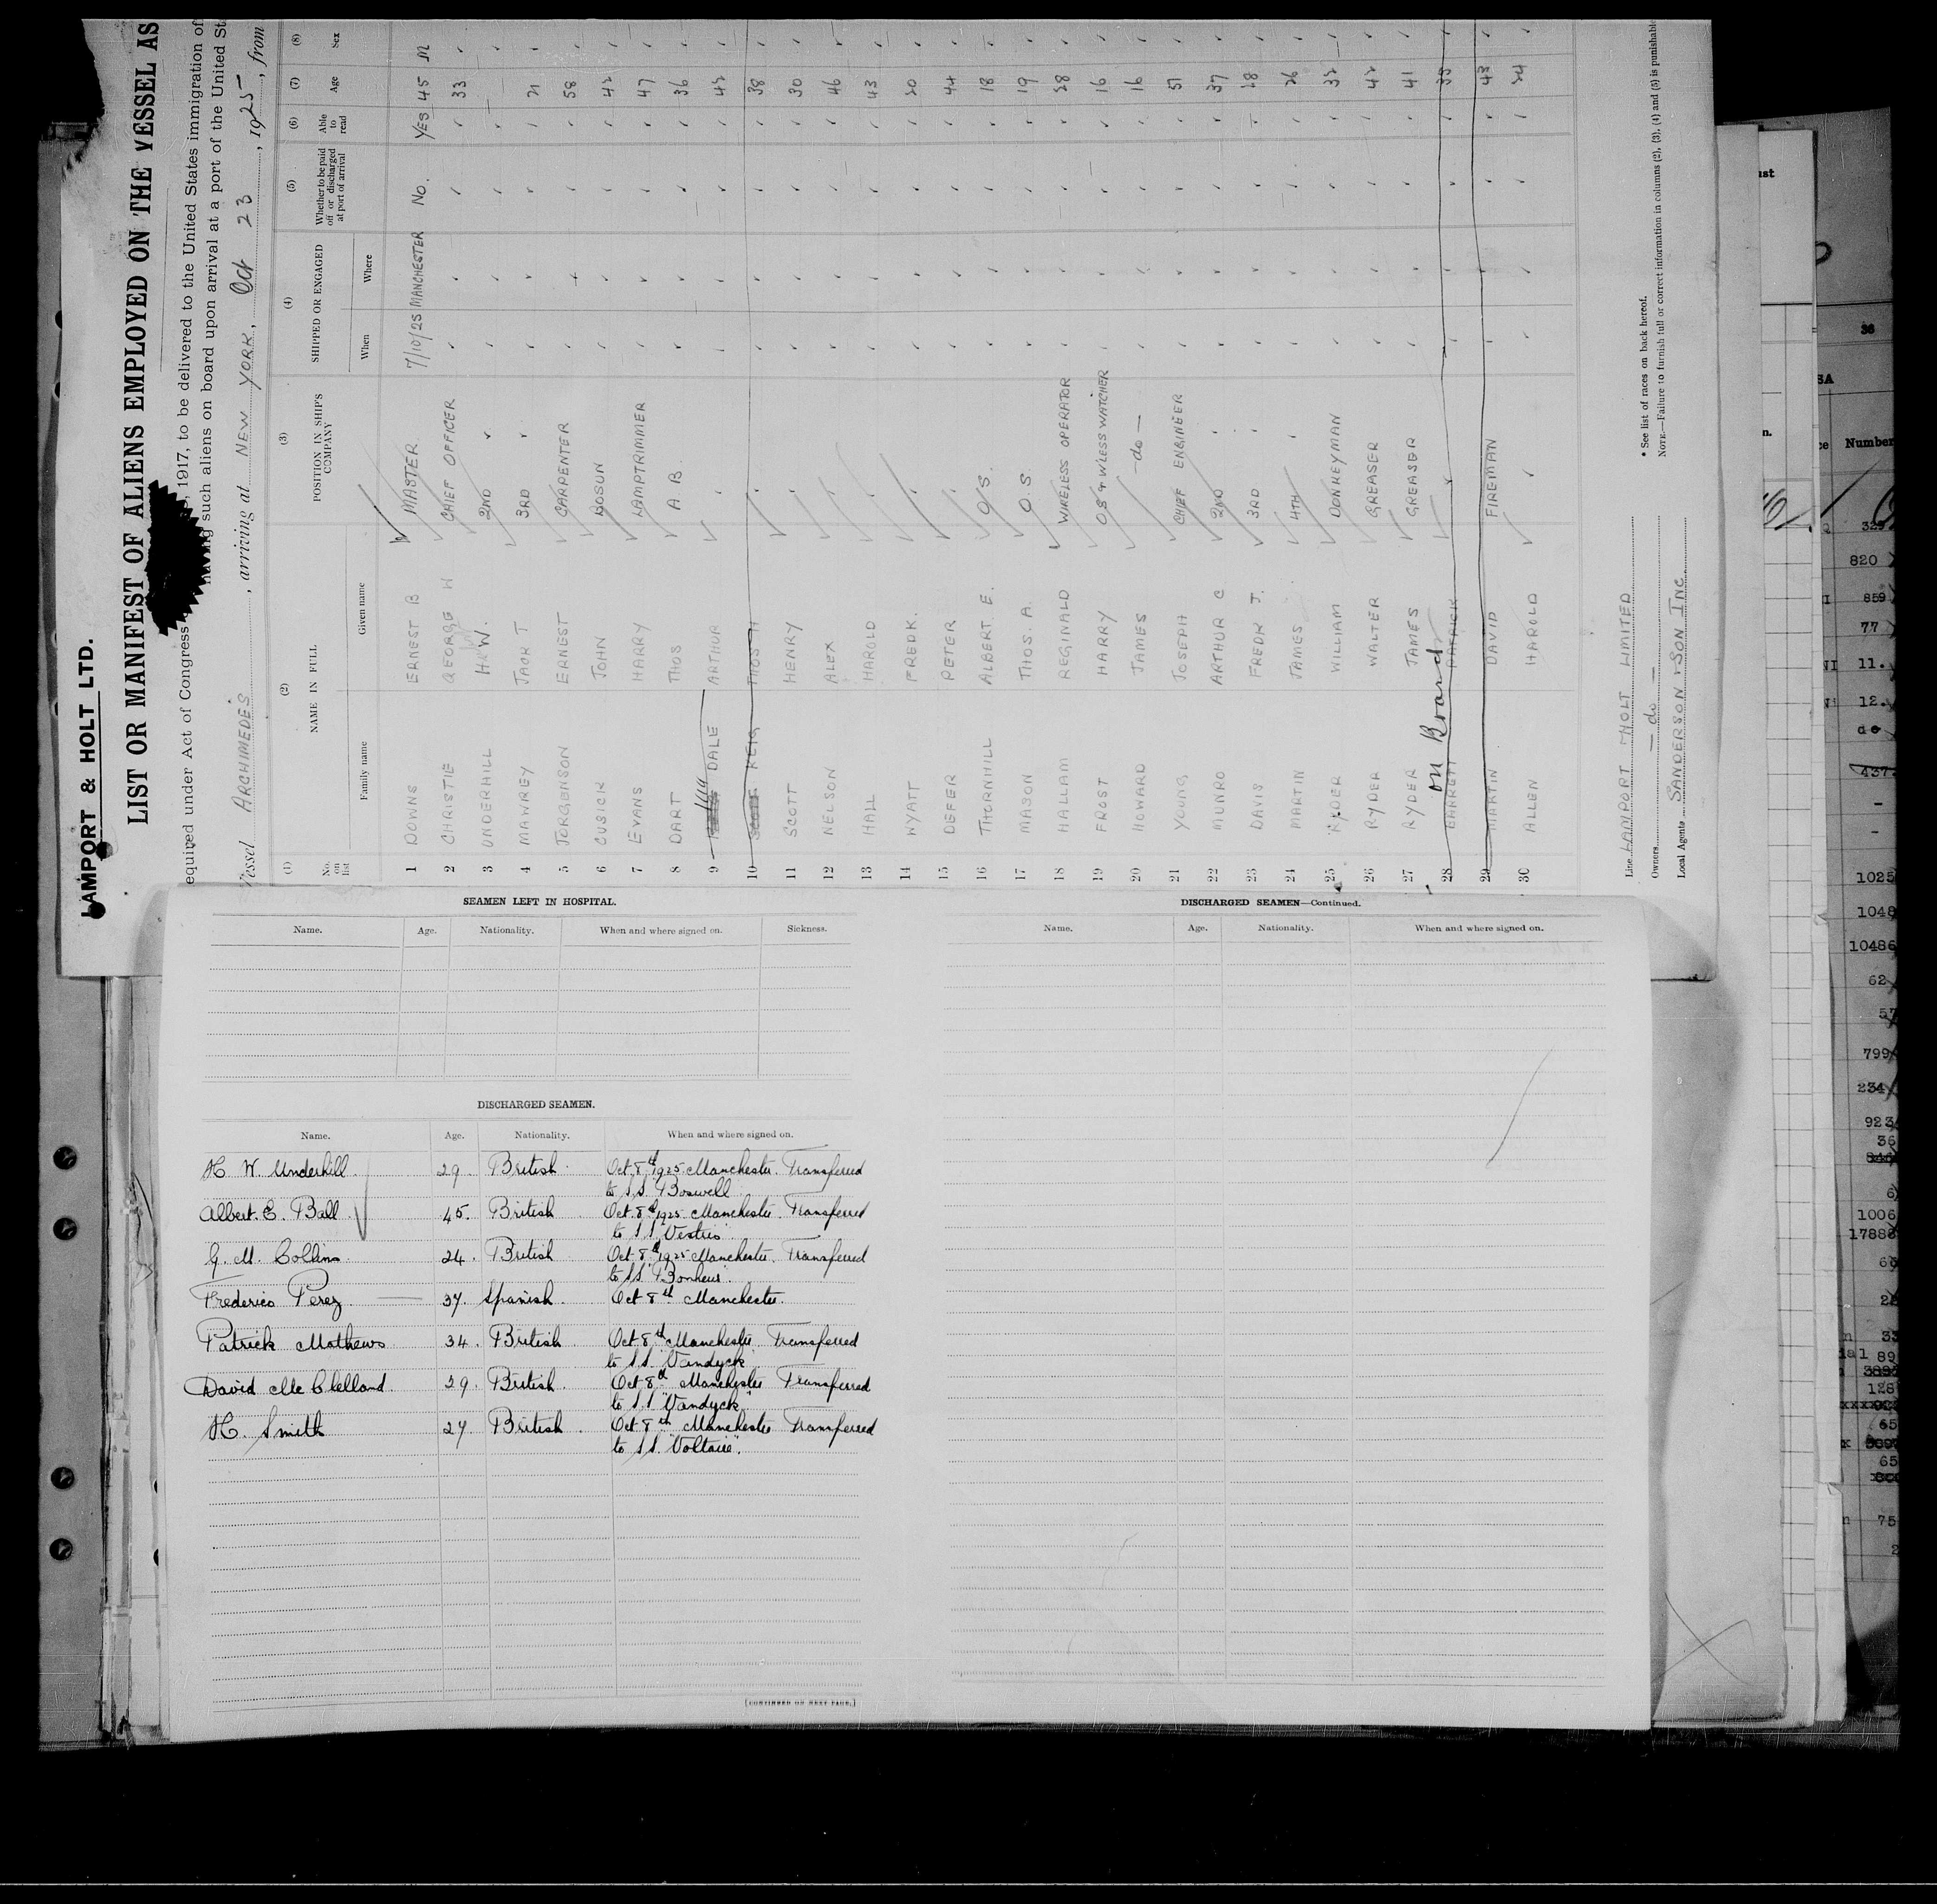 LAMPORT & HOLT LTD.
LIST OR MANIFEST OF ALIENS EMPLOYED ON THE VESSEL AS
equired under Act of Congress , 1917, to be delivered to the United States immigration of
having such aliens on board upon arrival at a port of the United Sta
Vessel ARCHIMEDES, arriving at NEW YORK, Oct 23, 1925, from
(1) (2) (3) (4) (5) (6) (7) (8)
No. on list NAME IN FULL POSITION IN SHIP'S COMPANY SHIPPED OR ENGAGED Whether to be paid off or discharged at port of arrival Able to read Age Sex
Family name Given name When Where
1 DOWNS ERNEST B MASTER 7/10/25 MANCHESTER No. YES 45 M
2 CHRISTIE GEORGE W CHIEF OFFICER 33
3 UNDERHILL H. W. 2ND
4 MAWREY JACK T 3RD 21
5 JORGENSON ERNEST CARPENTER 58
6 CUSICK JOHN BOSUN 42
7 EVANS HARRY LAMPTRIMMER 47
8 DART THOS A B. 36
9 DALE ARTHUR 42
10 KEIG THOS H 38
11 SCOTT HENRY 30
12 NELSON ALEX 46
13 HALL HAROLD 43
14 WYATT FREDK. 20
15 DEFFER PETER 44
16 THORNHILL ALBERT E. O.S. 18
17 MASON THOS. A. O.S 19
18 HALLAM REGINALD WIRELESS OPERATOR 28
19 FROST HARRY O.S & W'LESS WATCHER 16
20 HOWARD JAMES —do— 16
21 YOUNG JOSEPH CHIEF ENGINEER 51
22 MUNRO ARTHUR C 2ND 37
23 DAVIS FREDK J. 3RD 28
24 MARTIN JAMES. 4TH 26
25 RYDER WILLIAM DONKEYMAN 32
26 RYDER WALTER GREASER 42
27 RYDER JAMES GREASER 41
on Board
28 GARRETT PATRICK 35
29 MARTIN DAVID FIREMAN 43
30 ALLEN HAROLD 24
Line LAMPORT & HOLT LIMITED
Owners —do—
Local Agents SANDERSON & SON INC
* See list of races on back hereof.
NOTE.—Failure to furnish full or correct information in columns (2), (3), (4) and (5) is punishable
SEAMEN LEFT IN HOSPITAL.
Name. Age. Nationality. When and where signed on. Sickness.
DISCHARGED SEAMEN.
Name. Age. Nationality. When and where signed on.
H W. Underhill 29. British Oct 8th 1925 Manchester. Transferred
to S.S. "Boswell"
Albert. E. Ball 45. British Oct. 8th 1925 Manchester. Transferred
to S.S "Vestris"
G. M. Collins 24. British Oct 8th 1925 Manchester. Transferred
to S.S. "Bonheur".
Frederico Perez 37. Spanish. Oct 8th Manchester.
Patrick Mathews 34. British Oct 8th Manchester Transferred
to S.S. "Vandyck"
David Mc Clelland. 29. British. Oct 8th Manchester Transferred
to S.S "Vandyck"
H. Smith 27. British. Oct 8th Manchester Transferred
to S.S. "Voltaire".
[CONTINUED ON NEXT PAGE.]
DISCHARGED SEAMEN—Continued.
Name. Age. Nationality. When and where signed on.
36
Number
329
820
859
77
11.
12.
do
437
1025
1048
10486
62
57
799
234
923
36
1006
17888